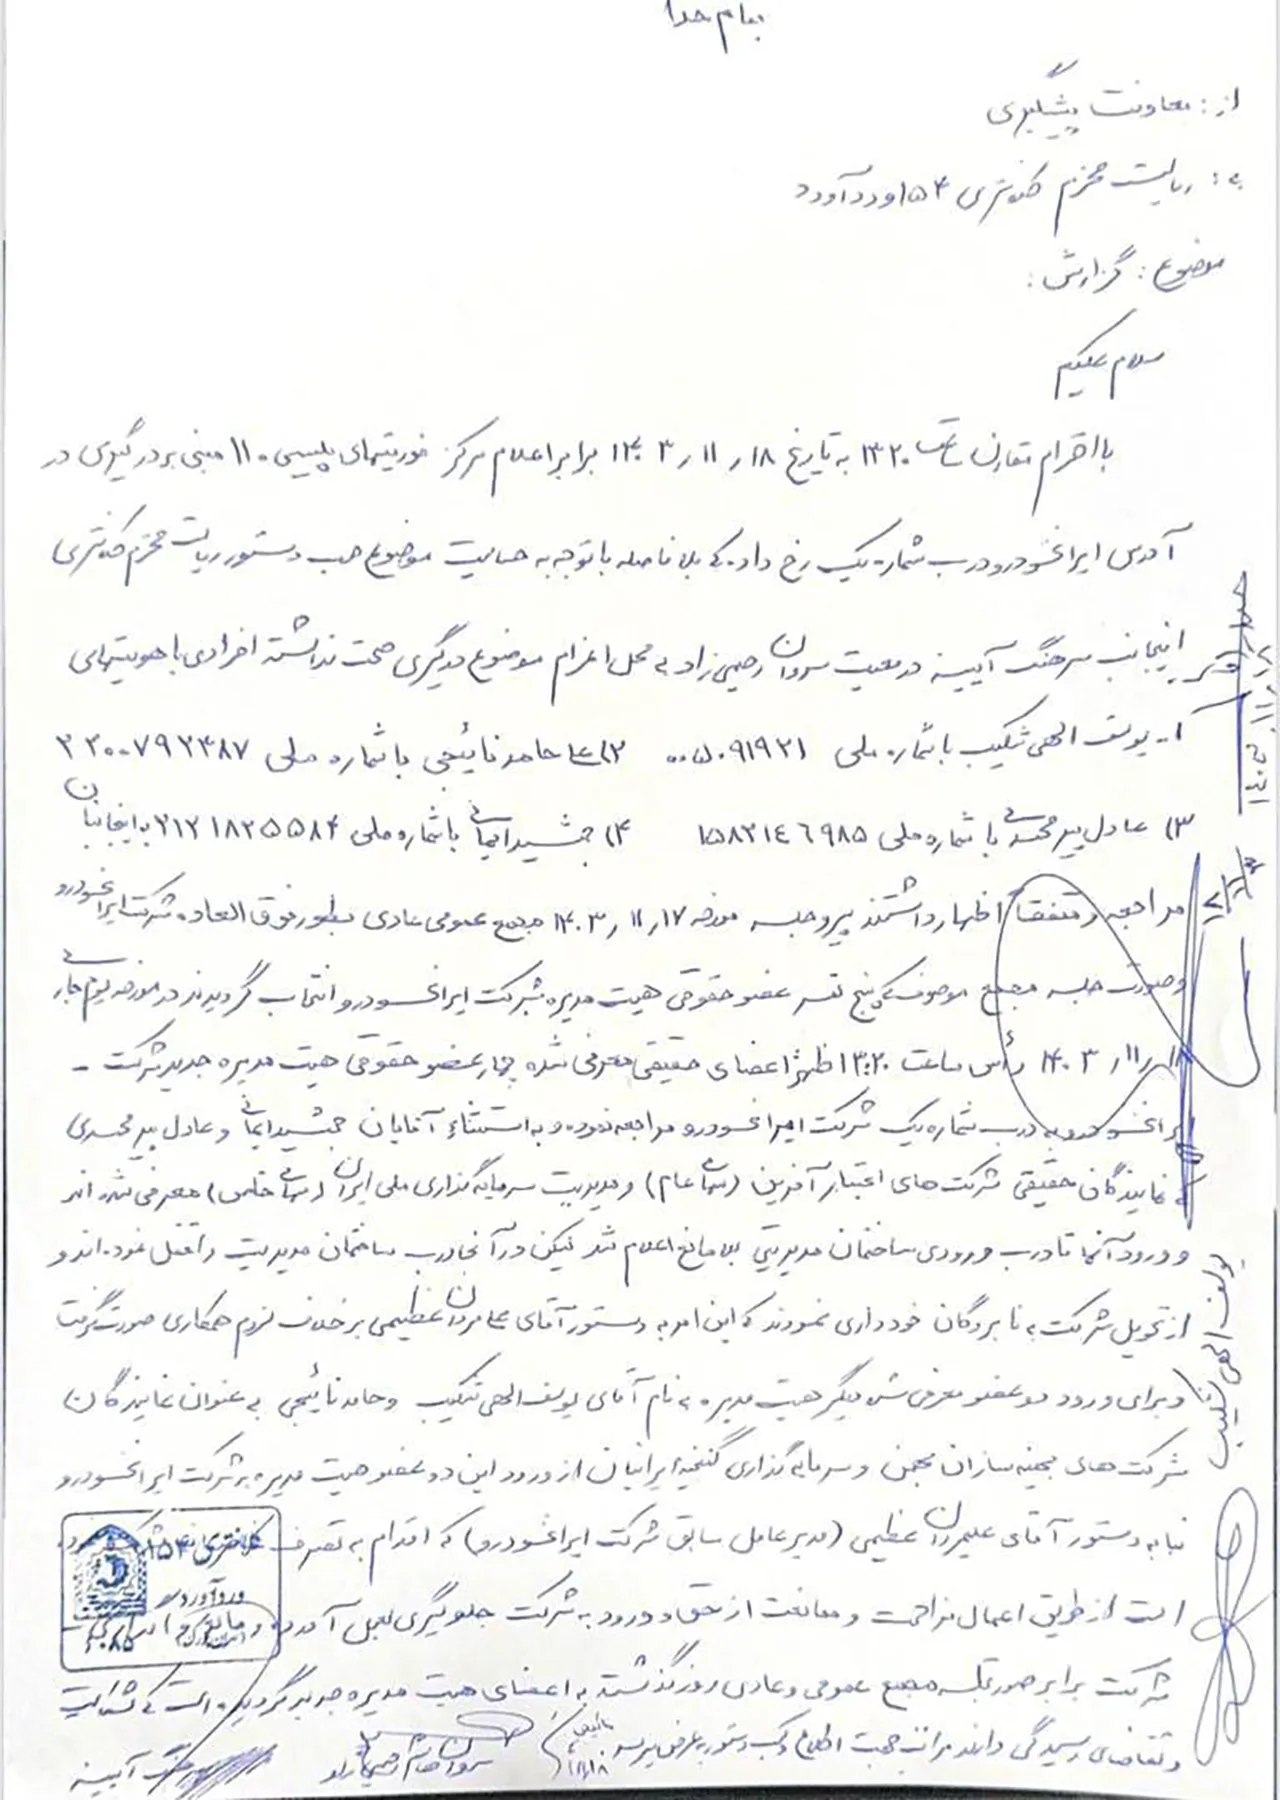 بنام خدا
از: معاونت پیشگیری
به: ریاست محترم کلانتری ۱۵۴ وردآورد
موضوع: گزارش:
سلام علیکم
بااحترام مقارن ساعت ۱۳۲۰ به تاریخ ۱۸ر۱۱ر۱۴۰۳ برابر اعلام مرکز فوریتهای پلیسی ۱۱۰ مبنی بر درگیری در
آدرس ایرانخودرو درب شماره یک رخ داده که بلافاصله با توجه به حساسیت موضوع حسب دستور ریاست محترم کلانتری
اینجانب سرهنگ آیینه در معیت ستوان رحیمی زاد به محل اعزام موضوع درگیری صحت نداشته افرادی با هویتهای
۱ـ یوسف الهی شکیب با شماره ملی ۰۰۵۰۹۱۹۲۱ ۲) حامد نائیجی با شماره ملی ۲۲۰۰۷۹۲۳۸۷
۳) عادل پیرمحمدی با شماره ملی ۱۵۸۲۱۴۶۹۸۵ ۴) جمشید ایمانی با شماره ملی ۲۱۲۱۸۲۵۵۸۴ به اینجانبان
مراجعه و متفقاً اظهار داشتند پیرو جلسه مورخه ۱۷ر۱۱ر۱۴۰۳ مجمع عمومی عادی بطور فوق العاده شرکت ایرانخودرو
وصورت جلسه مجمع موصوف که پنج نفر عضو حقوقی هیت مدیره شرکت ایرانخودرو انتخاب گردیدند در مورخه یوم جاری
۱۸ر۱۱ر۱۴۰۳ رأس ساعت ۱۳:۲۰ ظهر اعضای حقیقی معرفی شده چهار عضو حقوقی هیت مدیره جدید شرکت -
ایرانخودرو به درب شماره یک شرکت ایرانخودرو مراجعه نموده و به استثناء آقایان جمشید ایمانی و عادل پیرمحمدی
که نمایندگان حقیقی شرکت های اعتبار آفرین (سهامی عام) و مدیریت سرمایه گذاری ملی ایران (سهامی خاص) معرفی شده اند
و ورود آنها تا درب ورودی ساختمان مدیریتی بلامانع اعلام شد لیکن در آنجا درب ساختمان مدیریت را قفل نموده اند و
از تحویل شرکت به نامبردگان خودداری نمودند که این امر به دستور آقای علیمردان عظیمی بر خلاف لزوم همکاری صورت گرفت
و برای ورود دو عضو معرفی شده دیگر هیت مدیره به نام آقای یوسف الهی شکیب و حامد نائیجی به عنوان نمایندگان
شرکت های بهینه سازان بهمن و سرمایه گذاری گنجینه ایرانیان از ورود این دو عضو هیت مدیره به شرکت ایرانخودرو
بنا به دستور آقای علیمردان عظیمی (مدیرعامل سابق شرکت ایرانخودرو) که اقدام به تصرف
است از طریق اعمال مزاحمت و ممانعت از حق و ورود به شرکت جلوگیری بعمل آورده و مالکیت و
شرکت برابر صورتجلسه مجمع عمومی عادی روز گذشته به اعضای هیت مدیره جدید گردیده است که شکایت
و تقاضای رسیدگی دارند مراتب جهت اطلاع و کسب دستور بعرض میرسد
ستوان رحیمی زاد
سرهنگ آیینه
نائیجی
۱۱/۱۸
یوسف الهی شکیب
کلانتری ۱۵۴
وردآورد